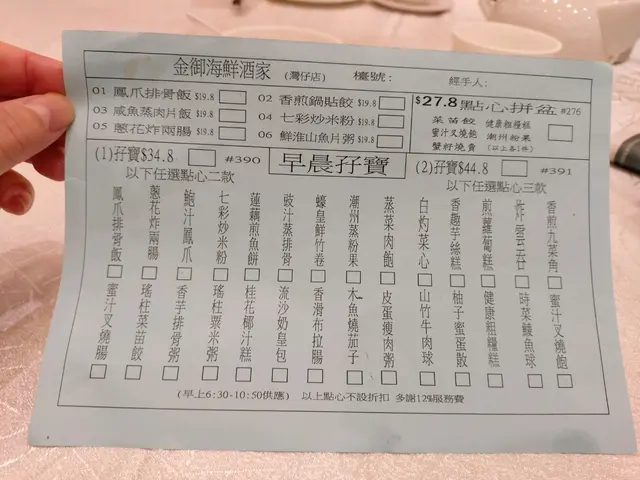 金御海鮮酒家 (灣仔店) 檯號: 經手人:
01 鳳爪排骨飯 $19.8
03 咸魚蒸肉片飯 $19.8
05 蔥花炸兩腸 $19.8
02 香煎鍋貼餃 $19.8
04 七彩炒米粉 $19.8
06 鮮淮山魚片粥 $19.8
$27.8點心拼盆 #276
菜苗餃 健康粗糧糕
蜜汁叉燒飽 潮州粉果
蟹籽燒賣 (以上各1件)
早晨孖寶
(1)孖寶$34.8 #390
以下任選點心二款
(2)孖寶$44.8 #391
以下任選點心三款
鳳爪排骨飯
蔥花炸兩腸
鮑汁鳳爪
七彩炒米粉
蓮藕煎魚餅
豉汁蒸排骨
蠔皇鮮竹卷
潮州蒸粉果
蒸菜肉飽
白灼菜心
香趣芋絲糕
煎蘿蔔糕
炸雲吞
香煎九菜角
蜜汁叉燒腸
瑤柱菜苗餃
香芋排骨粥
瑤柱粟米粥
桂花椰汁糕
流沙奶皇包
香滑布拉腸
木魚燒茄子
皮蛋瘦肉粥
山竹牛肉球
柚子蜜蛋散
健康粗糧糕
時菜鯪魚球
蜜汁叉燒飽
(早上6:30-10:50供應) 以上點心不設折扣 多謝12%服務費